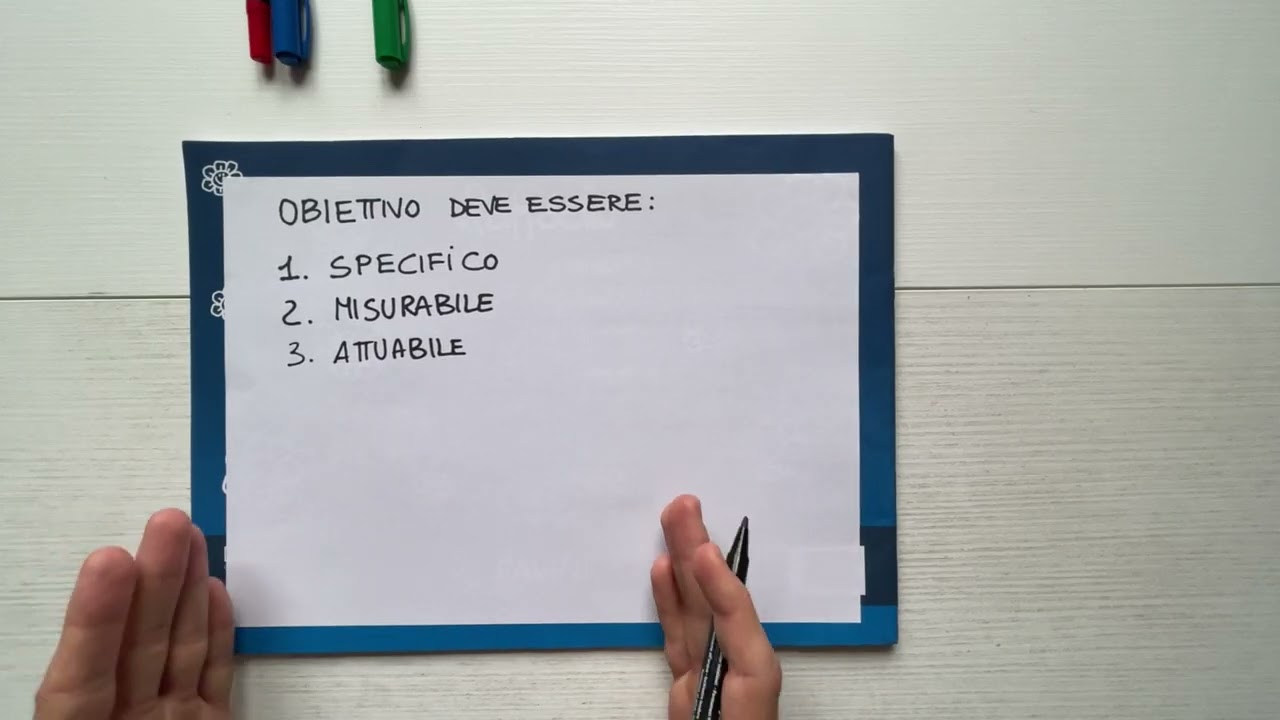 OBIETTIVO DEVE ESSERE:
1. SPECIFICO
2. MISURABILE
3. ATTUABILE